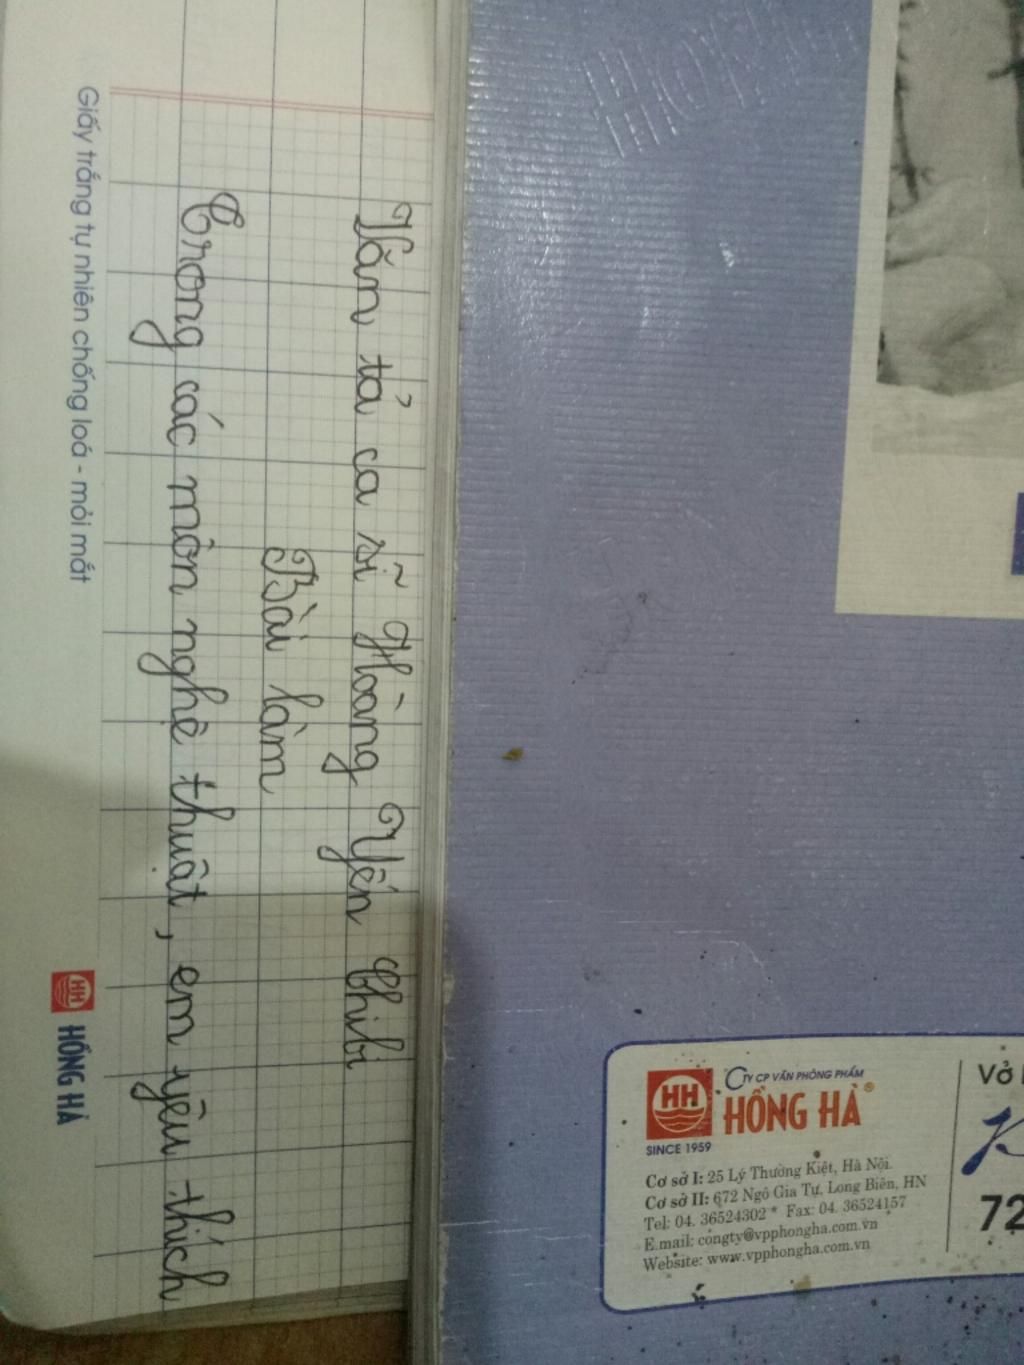 Văn tả ca sĩ Hoàng Yến Chibi
Bài làm
Trong các môn nghệ thuật, em yêu thích
Giấy trắng tự nhiên chống loá - mỏi mắt
HH HỒNG HÀ
HH
SINCE 1959
CTY CP VĂN PHÒNG PHẨM
HỒNG HÀ®
Cơ sở I: 25 Lý Thường Kiệt, Hà Nội.
Cơ sở II: 672 Ngô Gia Tự, Long Biên, HN
Tel: 04. 36524302 * Fax: 04. 36524157
E.mail: congty@vpphongha.com.vn
Website: www.vpphongha.com.vn
Vở
72